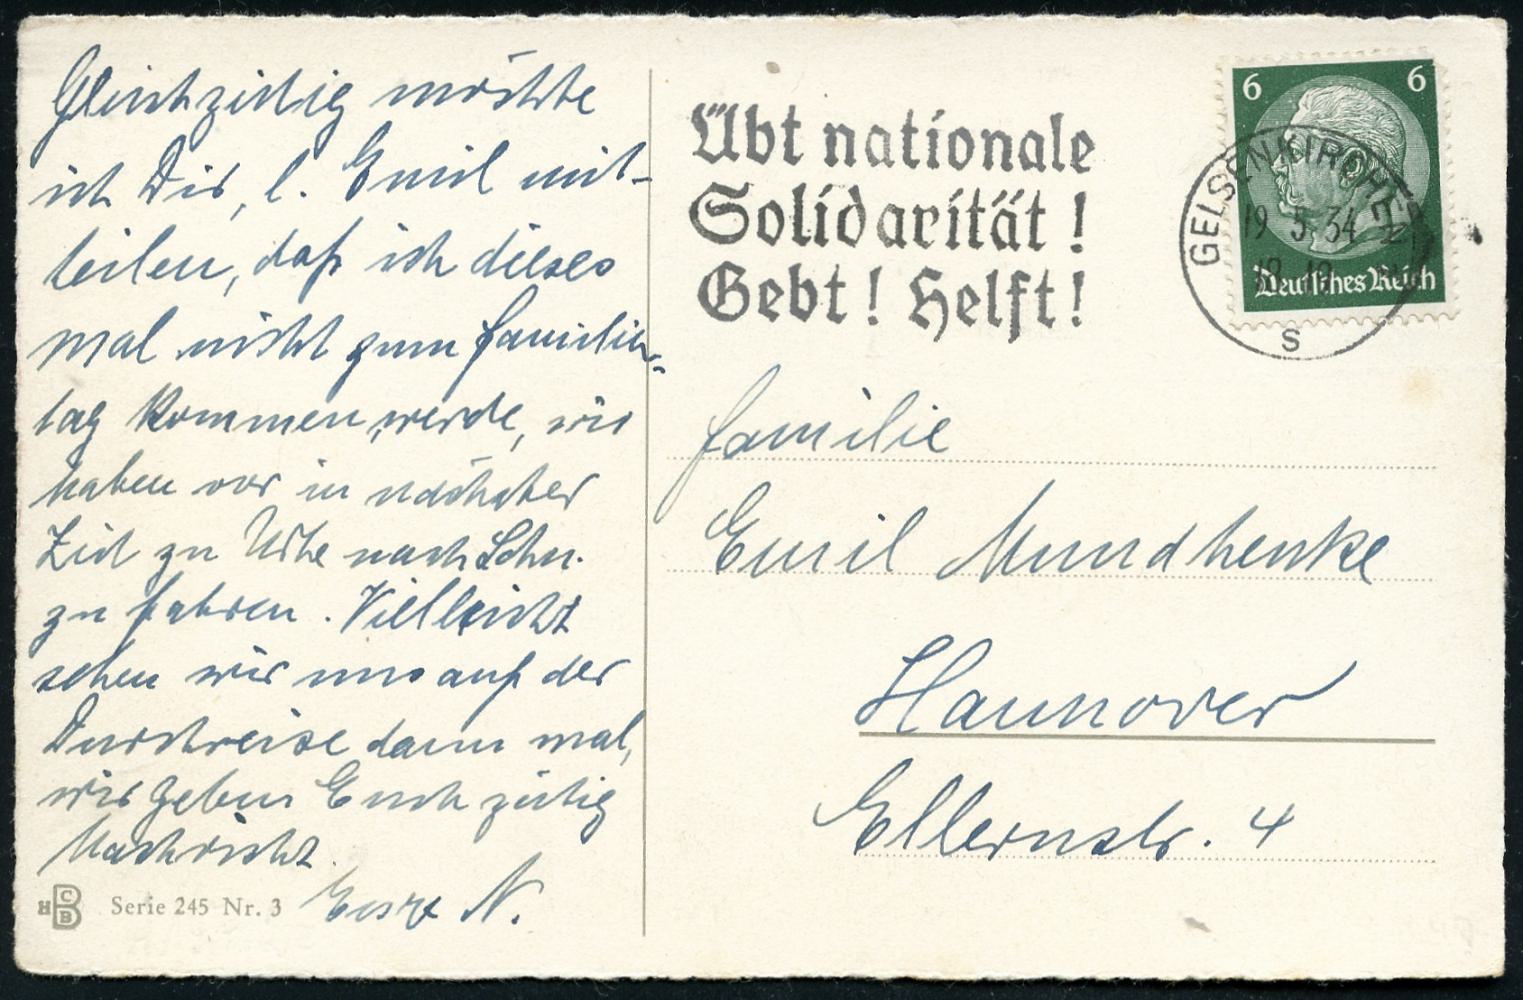 Gleichzeitig möchte
ich Dir, l. Emil mit-
teilen, daß ich dieses
mal nicht zum Familien-
tag kommen werde, wir
haben vor in nächster
Zeit zu nach Schn.
zu fahren. Vielleicht
sehen wir uns auf der
Durchreise dann mal,
wir geben Euch zeitig
Nachricht.
N.
HCB Serie 245 Nr. 3
Übt nationale
Solidarität!
Gebt! Helft!
6 6
Deutsches Reich
GELSENKIRCHEN
19 5 34
S
Familie
Emil Mundhenke
Hannover
Ellernstr. 4